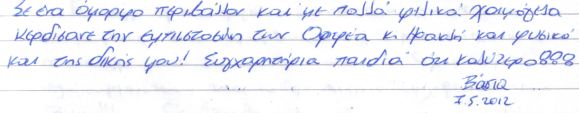 Σε ένα όμορφο περιβάλλον και με πολλά φιλικά χαμόγελα
κερδίσατε την εμπιστοσύνη των Ορφέα κ. Ηρακλή και φυσικά
και της δικής μου! Συγχαρητήρια παιδιά ότι καλύτερο!!!
Βάσια
7.5.2012